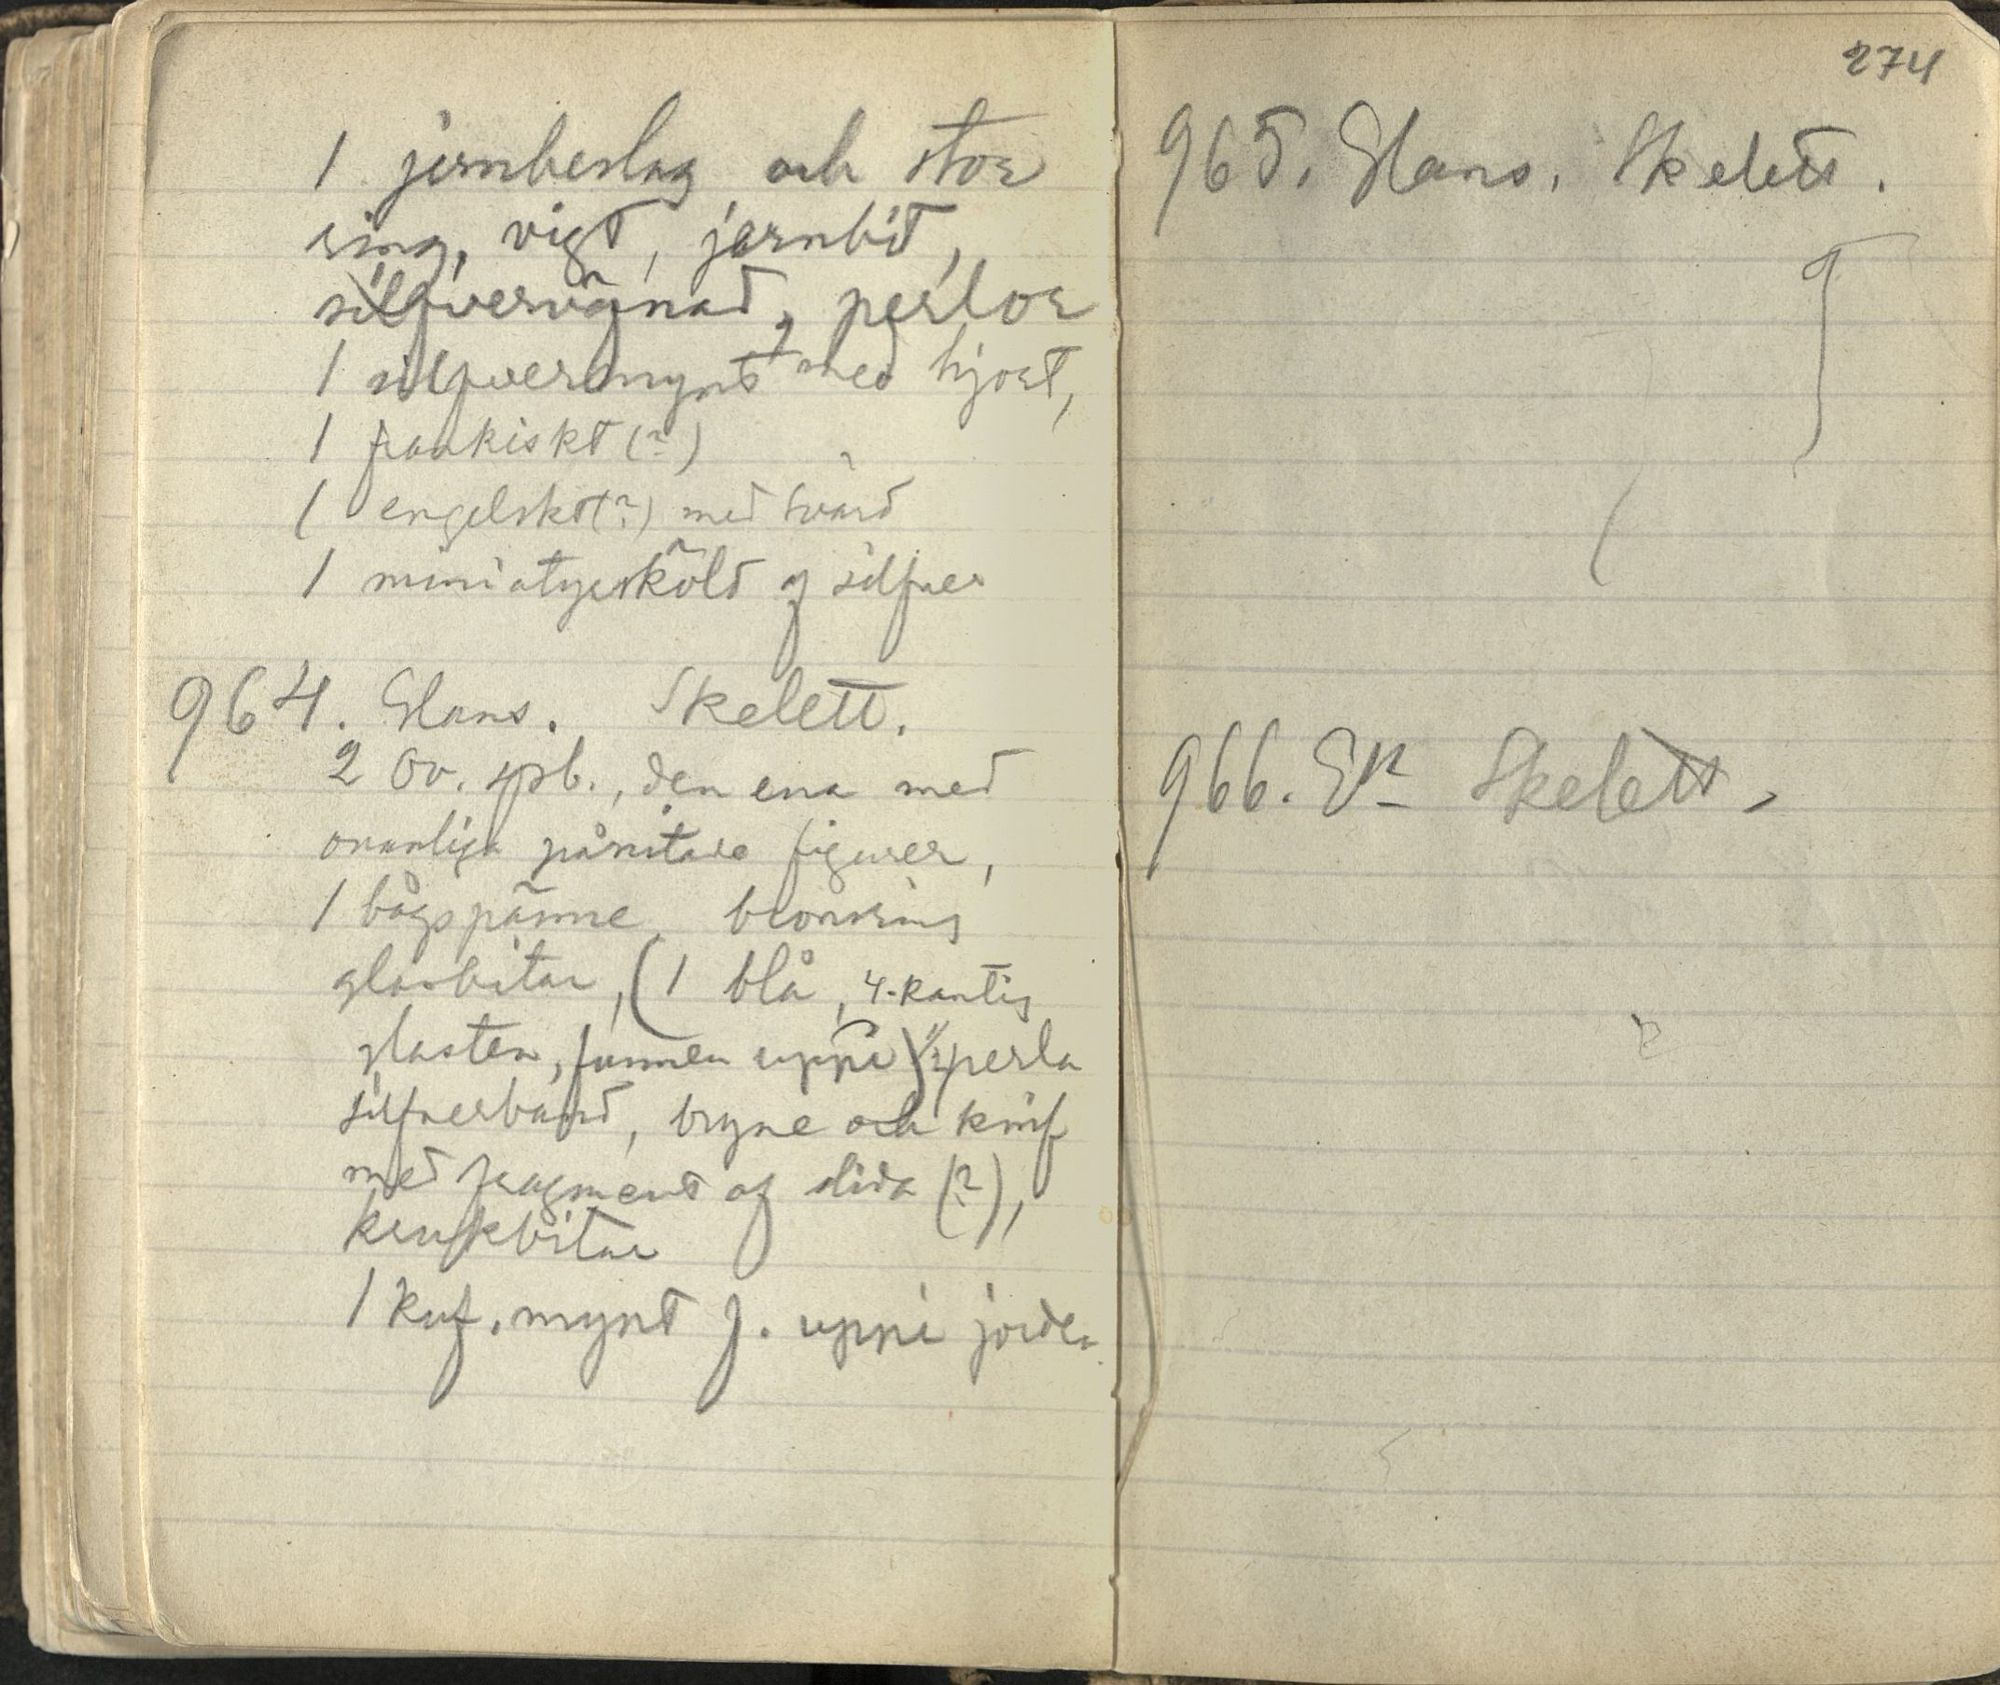 1 jernbeslag och stor
ring, vigt, jernbit,
silfvervägnad, perlor
1 silfvermynt med hjort,
1 frankiskt (?)
1 engelskt (?) med svärd
1 miniatyrsköld af silfver
964. Glans. Skelett.
2 ov. spb., den ena med
ovanliga påritade figurer,
1 bågspänne, bronsring
glasbitar, (1 blå, 4-kantig
glasten, funnen uppe) perla
silfverband, bryne och knif
med fragment af slida (?),
krukbitar
1 kuf. mynt f. uppe i jorden
274
965. Glans. Skelett.
966. Ek Skelett.